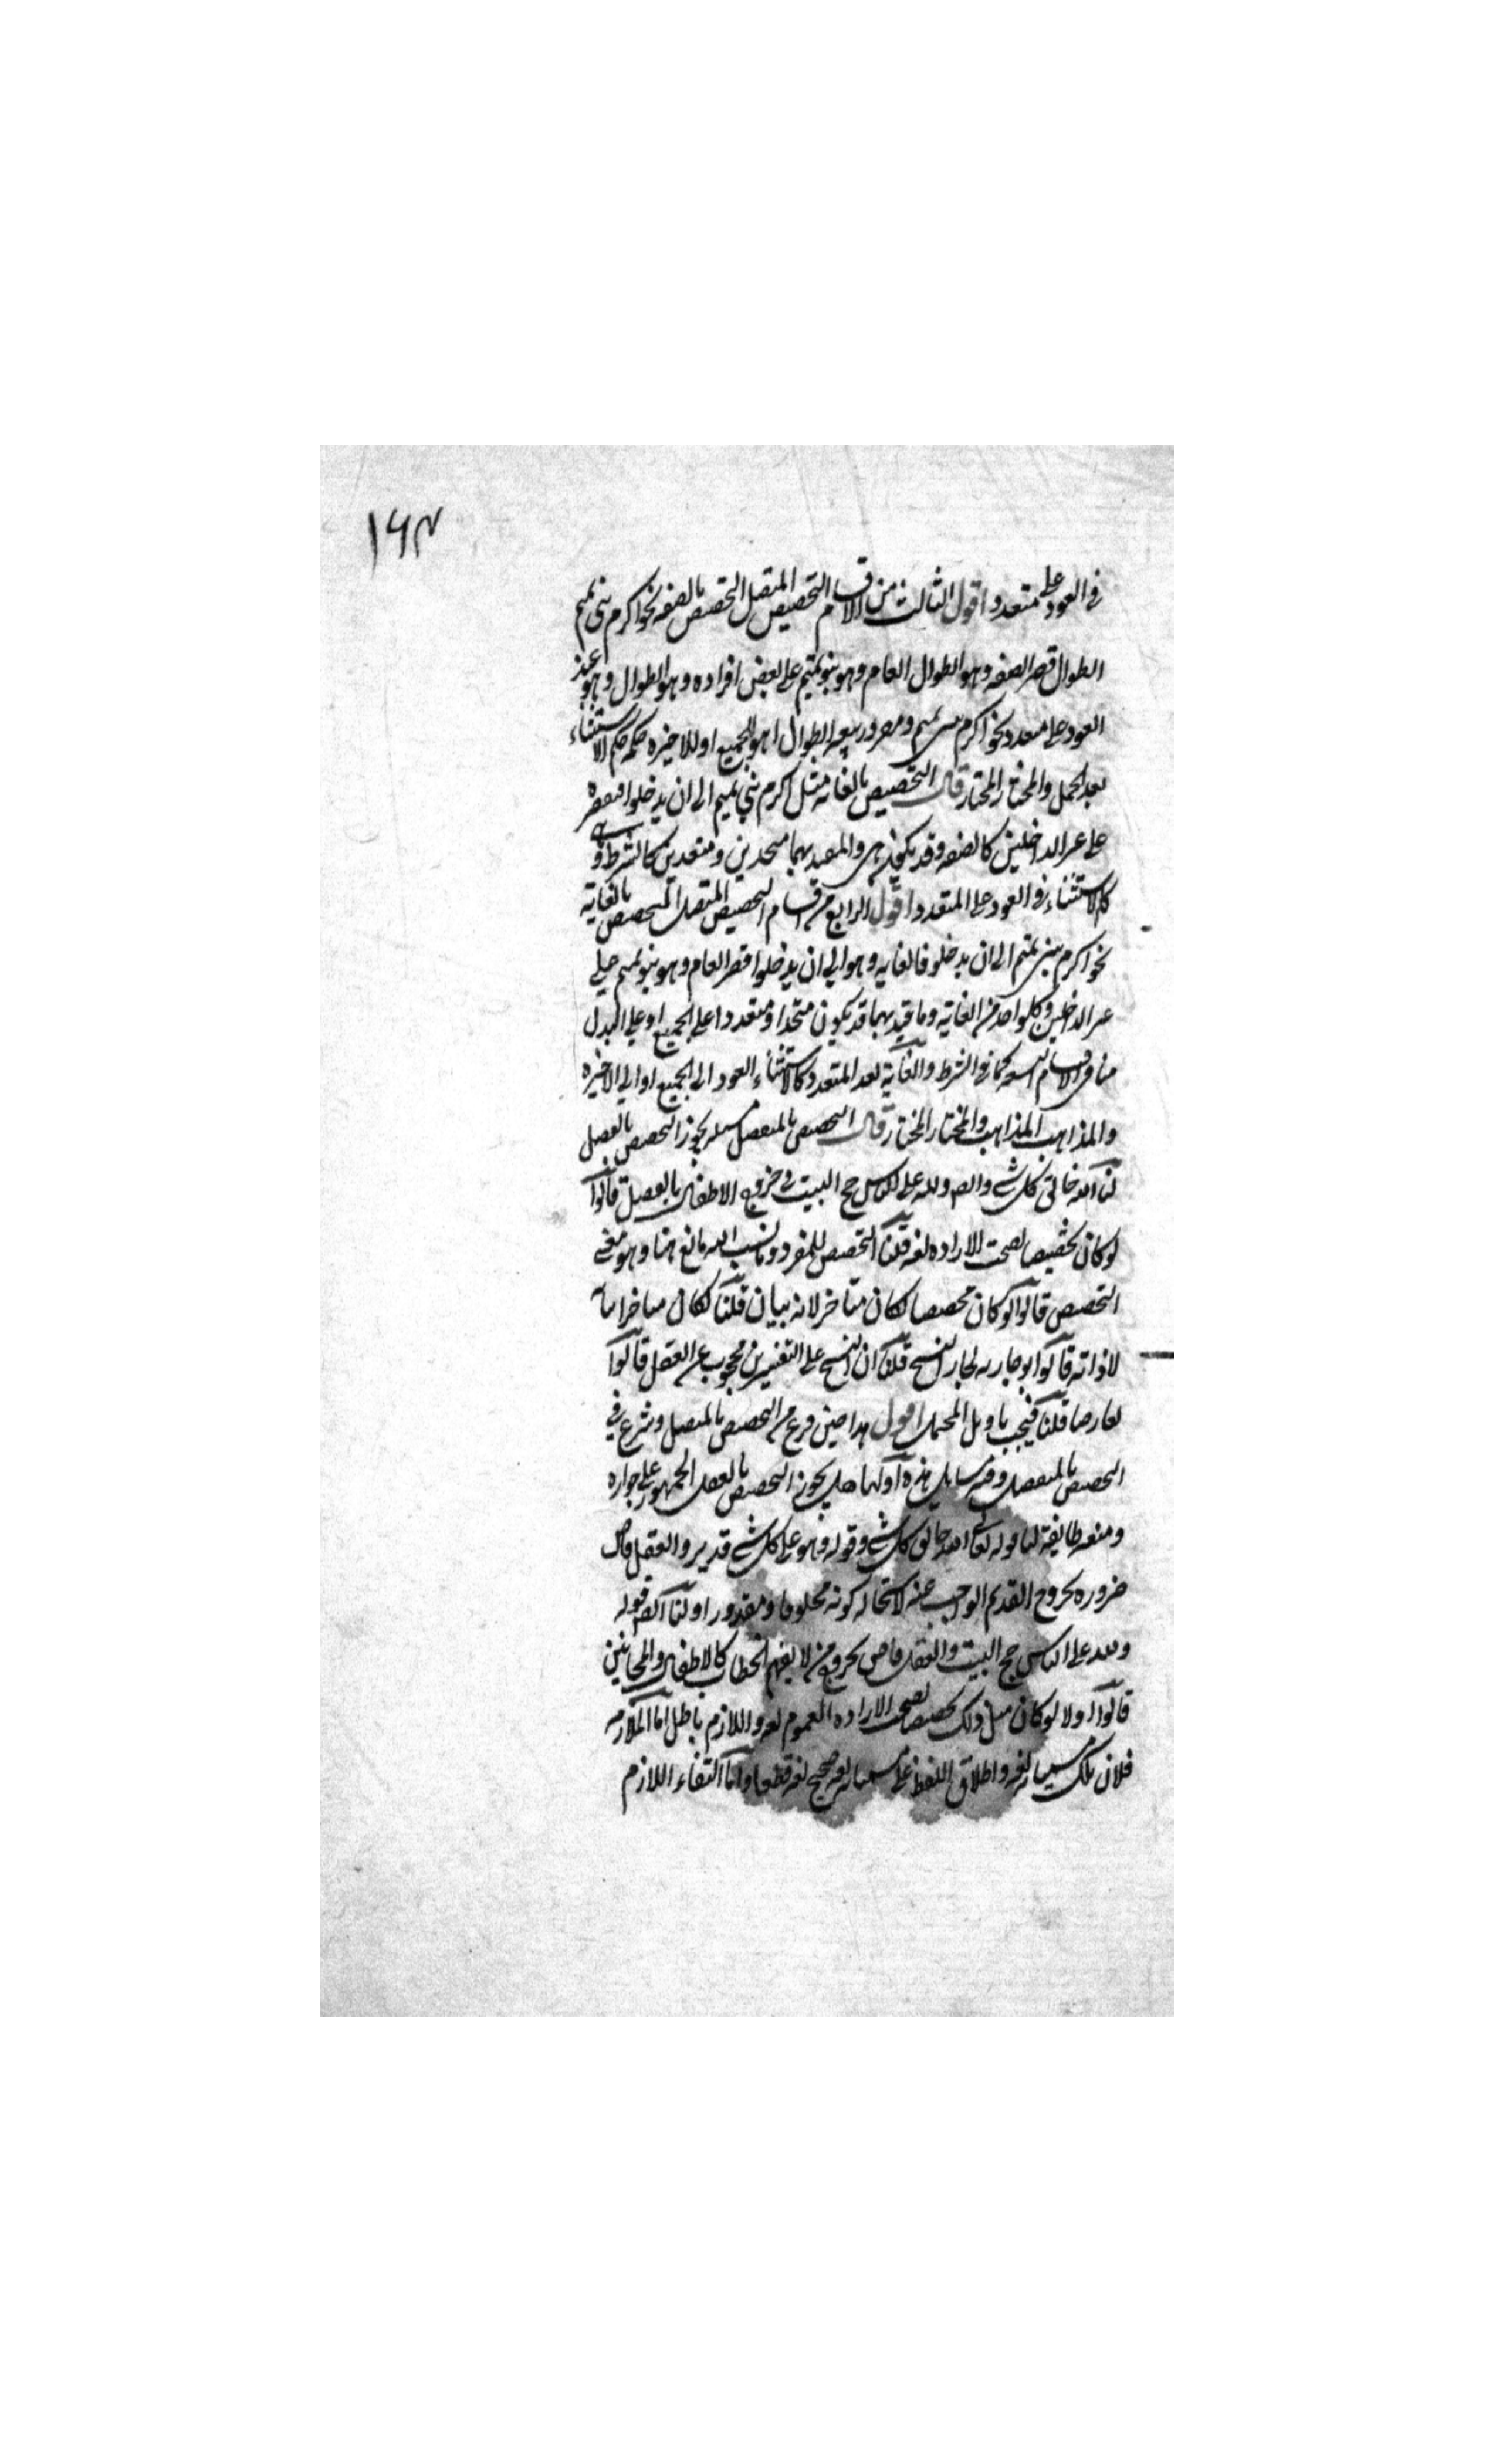 ۱۶۳
في العود على متعدد اقول الثالث من الاقسام التخصيص المتصل التخصيص بالصفه نحو اكرم بني تميم
الطوال قصر الصفه وهو الطوال العام وهو بنو تميم على بعض افراده وهو الطوال وهو عند
العود على متعدد نحو اكرم بنى تميم ومضر وربيعه الطوال اهو للجميع او للاخيره حكمه حكم الاستثناء
بعد الجمل والمختار المختار قال التخصيص بالغايه مثل اكرم بني تميم الى ان يدخلوا فيقصره
على غير الداخلين كالصفه وقد يكون هى والمقيد بها متحدين ومتعددين كالشرط و
كالاستثناء في العود على المتعدد اقول الرابع من اقسام التخصيص المتصل التخصيص بالغايه
نحو اكرم بنى تميم الى ان يدخلو فالغايه وهو الى ان يدخلوا قصر العام وهو بنو تميم على
غير الداخلين وكل واحد من الغايه وما قيد بها قد يكون متحدا ومتعددا على الجميع او على البدل
الاقسام التسعه كما في الشرط والغاية بعد المتعدد كالاستثناء العود الى الجميع او الى الاخيره
والمذاهب المذاهب والمختار المختار قال التخصيص بالمنفصل مسله يجوز التخصيص بالعقل
لنا الله خالق كل شي وايضا ولله على الناس حج البيت في خروج الاطفال بالعقل قالوا
لو كان تخصيصا لصحت الاراده لغه قلنا التخصيص للمفرد وما نسب اليه مانع هنا وهو معنى
التخصيص قالوا لو كان مخصصا لكان متاخر لانه بيان قلنا لكان متاخرا بيانه
لا ذاته قالوا لو جاز به لجاز النسخ قلنا ان النسخ على التفسيرين محجوب عن العقل قالوا
تعارضا قلنا فيجب تاويل المحتمل اقول هذا حين فرغ من التخصيص بالمتصل وشرع في
التخصيص بالمنفصل وفيه مسايل هذه اولها هل يجوز التخصيص بالعقل الجمهور على جوازه
ومنعه طايفة لنا قوله تعالى الله خالق كل شي وقوله وهو على كل شي قدير والعقل قاض
ضروره بخروج القديم الواجب عنه لاستحاله كونه مخلوقا ومقدورا ولنا ايضا قوله
ولله على الناس حج البيت والعقل قاض بخروج من لا يفهم الخطاب كالاطفال والمجانين
قالوا اولا لو كان مثل ذلك تخصيصا لصحت الاراده العموم لغه واللازم باطل اما الملازمه
فلان تلك مسمياته لغه واطلاق اللفظ على مسمياته لغه صحيح لغه قطعا واما انتفاء اللازم